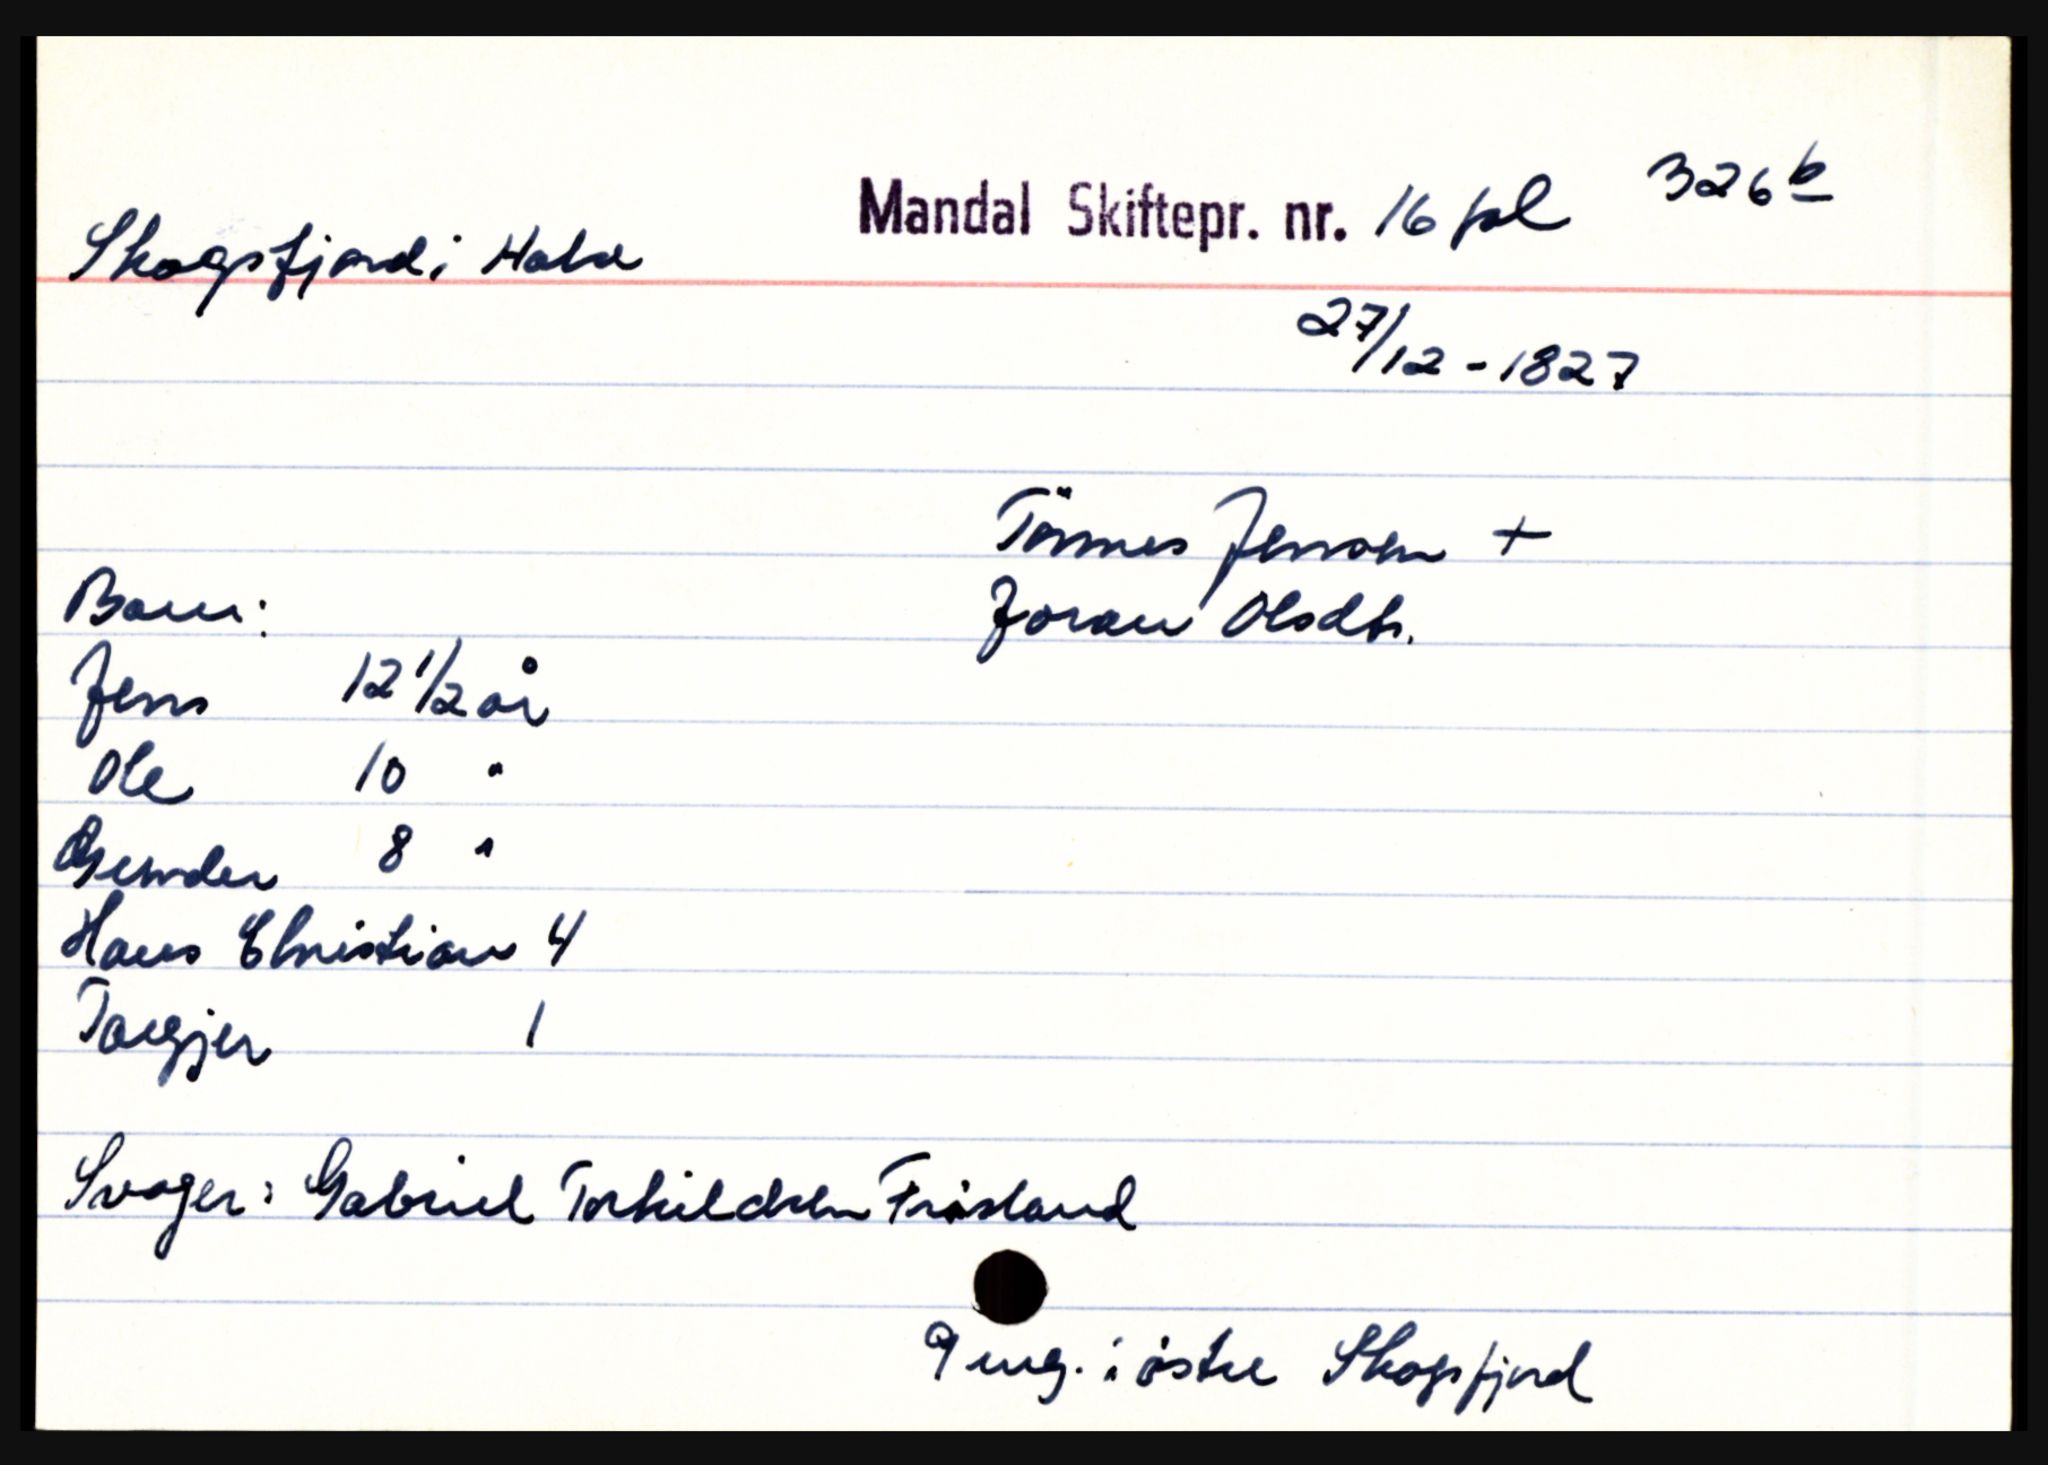 Mandal Skiftepr. nr. 16 fol 326 b
Skogsfjord i Halse
27/12 - 1827
Tönnes Jensen +
Joran Olsdtr.
Barn:
Jens 12 1/2 år
Ole 10 "
Gunder 8 "
Hans Christian 4
Targjer 1
Svoger: Gabriel Torkildsen Frøsland
9 eng. i östre Skogsfjord